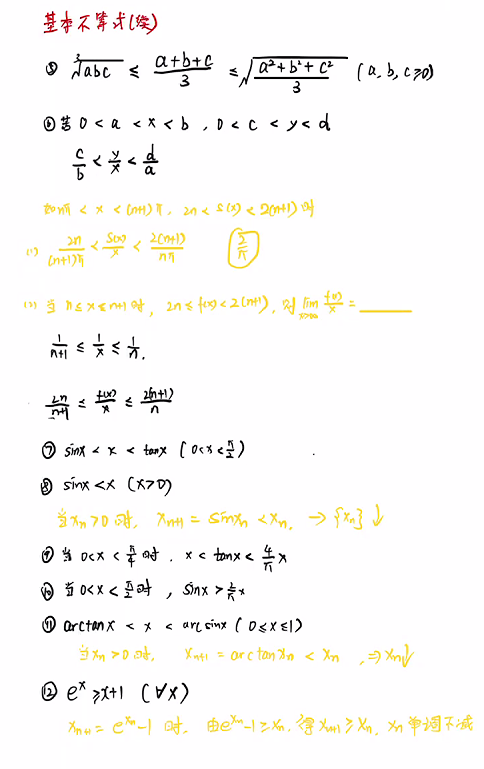 基本不等式(续)
⑤ ∛abc ≤ (a+b+c)/3 ≤ √((a²+b²+c²)/3) (a, b, c ≥0)
⑥ 若 0 < a < x < b , 0 < c < y < d
c/b < y/x < d/a
如 nπ < x < (n+1)π, 2n < S(x) < 2(n+1) 时
(1) 2n/((n+1)π) < S(x)/x < 2(n+1)/(nπ) 2/π
(2) 当 n ≤ x ≤ n+1 时, 2n ≤ f(x) < 2(n+1), 对 lim x→∞ f(x)/x = ____
1/(n+1) ≤ 1/x ≤ 1/n.
2n/(n+1) ≤ f(x)/x ≤ 2(n+1)/n
⑦ sinx < x < tanx ( 0<x<π/2 )
⑧ sinx <x (x>0)
当 xn >0 时, xn+1 = sinxn < xn, → {xn} ↓
⑨ 当 0<x < π/4 时. x < tanx < 4/π x
⑩ 当 0<x < π/2 时, sinx > 2/π x
⑪ arctanx < x < arcsinx ( 0≤x≤1)
当 xn >0 时, xn+1 = arctan xn < xn , ⇒ xn↓
⑫ eˣ ≥ x+1 (∀x)
xn+1 = e^xn -1 时, 由 e^xn -1 ≥ xn. 得 xn+1 ≥ xn, xn 单调不减